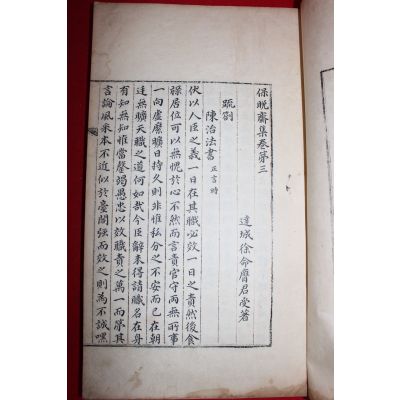 保晩齋集卷第三
達城徐命膺君受著
疏劄
陳治法書 正言時
伏以人臣之義一日在其職必效一日之責然後食
祿居位可以無愧於心不然而言責官守兩無所事
一向虛縻曠日持久則非惟私分之不安而已在朝
廷無曠天職之道何如哉今臣辭未得請職名在身
有知無知惟當罄竭愚忠以效職責之萬一而第其
言論風采本不近似於臺閣強而效之則爲不誠嘿